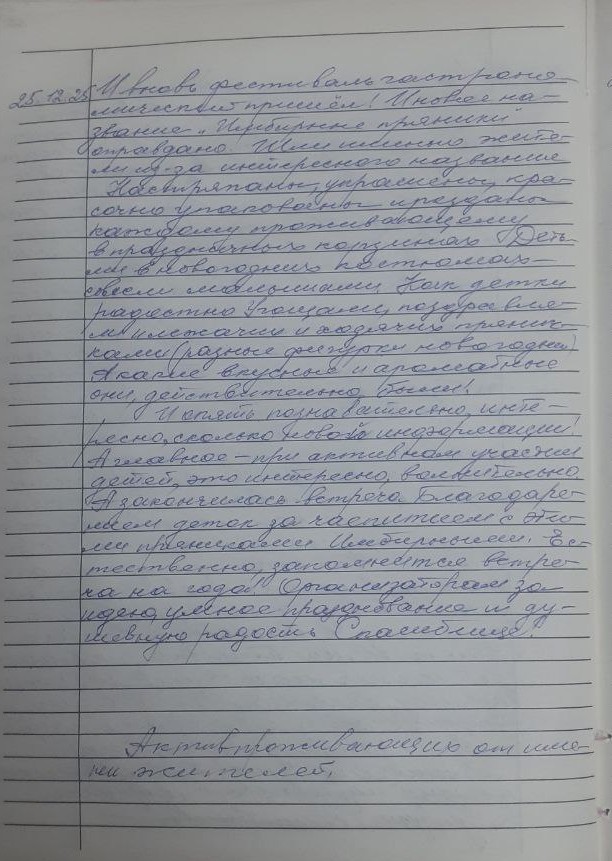 25.12.25 И вновь фестиваль гастроно-
мический пришёл! И новое на-
звание „Имбирные пряники"
оправдано. жите-
ли из-за интересного названия
Настряпаны, украшены, кра-
сочно упакованы и розданы
каждому проживающему
в праздничных корзинках. Деть-
ми в новогодних костюмах-
совсем малышами. Как детки
радостно угощали, поздравля-
ли лежачих и ходячих пряни-
ками (разные фигурки новогодние)
А какие вкусные и ароматные
они, действительно, были!
И опять познавательно, инте-
ресно, сколько новой информации!
А главное – при активном участии
детей, это интересно, волнительно.
А закончилась встреча благодаре-
нием деток за чаепитием с эти-
ми пряниками Имбирными. Ес-
тественно, запомнится встре-
ча на года! Организаторам за
идею, умное празднование и ду-
шевную радость Спасибище!
Актив проживающих от име-
ни жителей.